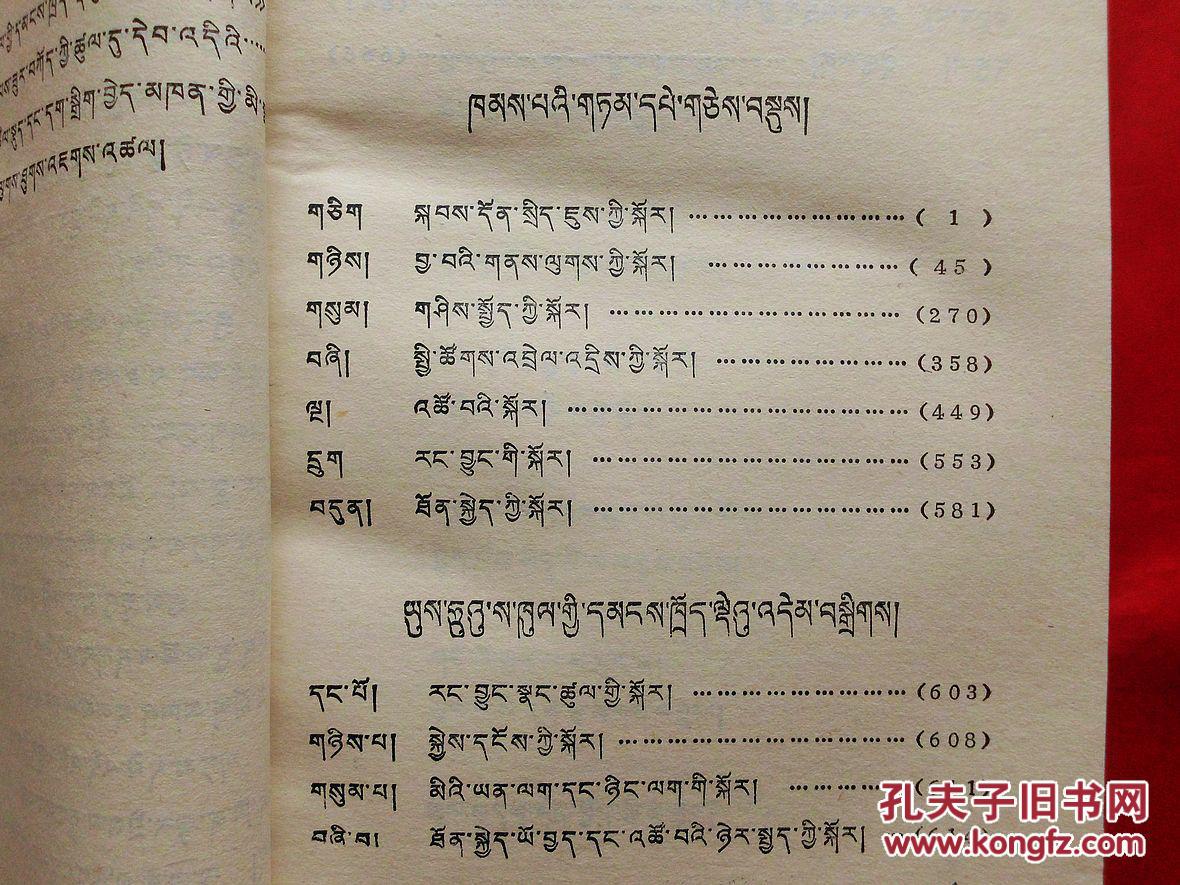 དུ་དེབ་འདིའི……
སྒྲིག་བྱེད་མཁན་གྱི་མི་
ཐུགས་འཇགས་འཚལ།
ཁམས་པའི་གཏམ་དཔེ་གཅེས་བསྡུས།
གཅིག སྐབས་དོན་སྲིད་ཇུས་ཀྱི་སྐོར། ………………………( 1 )
གཉིས། བྱ་བའི་གནས་ལུགས་ཀྱི་སྐོར། ……………………( 45 )
གསུམ། གཤིས་སྤྱོད་ཀྱི་སྐོར། ………………………………(270)
བཞི། སྤྱི་ཚོགས་འབྲེལ་འདྲིས་ཀྱི་སྐོར། ……………………(358)
ལྔ། འཚོ་བའི་སྐོར། ……………………………………(449)
དྲུག རང་བྱུང་གི་སྐོར། …………………………………(553)
བདུན། ཐོན་སྐྱེད་ཀྱི་སྐོར། …………………………………(581)
ཡུས་ཧྲུའུ་ས་ཁུལ་གྱི་དམངས་ཁྲོད་ལྡེའུ་འདེམ་བསྒྲིགས།
དང་པོ། རང་བྱུང་སྣང་ཚུལ་གྱི་སྐོར། ………………………(603)
གཉིས་པ། སྐྱེས་དངོས་ཀྱི་སྐོར། ………………………………(608)
གསུམ་པ། མིའི་ཡན་ལག་དང་ཉིང་ལག་གི་སྐོར། …………
བཞི་བ། ཐོན་སྐྱེད་ཡོ་བྱད་དང་འཚོ་བའི་ཉེར་སྤྱད་ཀྱི་སྐོར།
孔夫子旧书网
www.kongfz.com